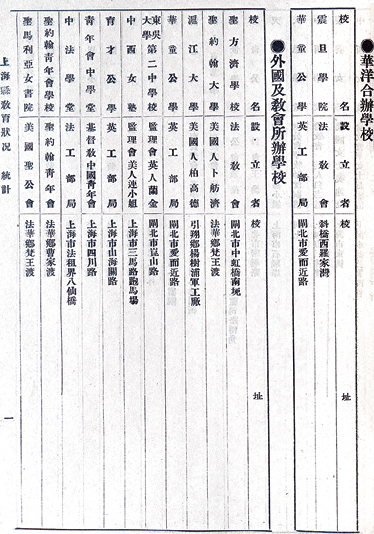 ●華洋合辦學校
校名 設立者 校址
震旦學院 法教會 斜橋西羅家灣
華童公學 英工部局 閘北市愛而近路
●外國及教會所辦學校
校名 設立者 校址
聖方濟學校 法教會 閘北市中虹橋南堍
聖約翰大學 美國人卜舫濟 法華鄉梵王渡
滬江大學 美國人柏高德 引翔鄉楊樹浦軍工廠
華童公學 英工部局 閘北市愛而近路
東吳大學第二中學校 監理會英人蘭金 閘北市崑山路
中西女塾 監理會美人連小姐 上海市三馬路跑馬場
育才公學 英工部局 上海市山海關路
青年會中學堂 基督敎中國靑年會 上海市四川路
中法學堂 法工部局 上海市法租界八仙橋
聖約翰靑年會學校 聖約翰靑年會 法華鄉曹家渡
聖馬利亞女書院 美國聖公會 法華鄉梵王渡
上海縣敎育狀况 統計
一